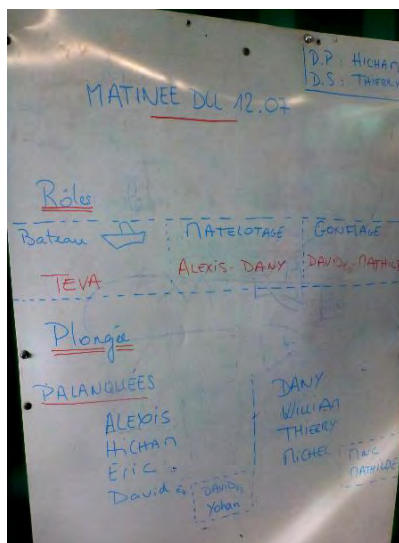 D.P : HICHAM
D.S : THIERRY
MATINEE DU 12.07
Rôles
Bateau
MATELOTAGE
GONFLAGE
TEVA
ALEXIS - DANY
MATHILDE
Plongée
PALANQUÉES
ALEXIS
HICHAM
ERIC
David
DAVID
Yohan
DANY
WILLIAM
THIERRY
MICHEL
MATHILDE